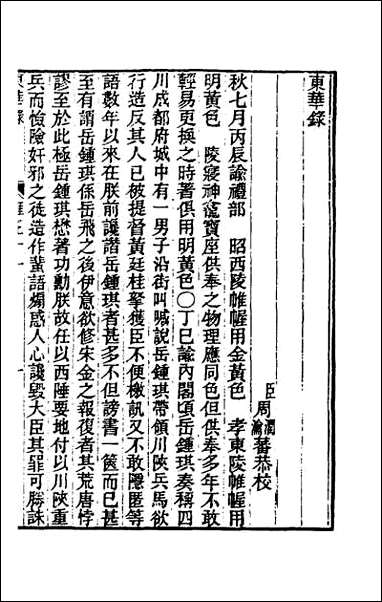 東華錄
臣周潤蕃周瀹蕃恭校
秋七月丙辰諭禮部　昭西陵帷幄用金黃色　孝東陵帷幄用
明黃色　陵寢神龕寶座供奉之物理應同色但供奉多年不敢
輕易更換之時著俱用明黃色〇丁巳諭內閣頃岳鍾琪奏稱四
川成都府城中有一男子沿街叫喊說岳鍾琪帶領川陝兵馬欲
行造反其人已被提督黃廷桂拏獲臣不便檄訊又不敢隱匿等
語數年以來在朕前讒譖岳鍾琪者甚多不但謗書一篋而已甚
至有謂岳鍾琪係岳飛之後伊意欲修宋金之報復者其荒唐悖
謬至於此極岳鍾琪懋著功勳朕故任以西陲要地付以川陝重
兵而憸險奸邪之徒造作蜚語煽惑人心讒毀大臣其罪可勝誅
東華錄
雍正十一